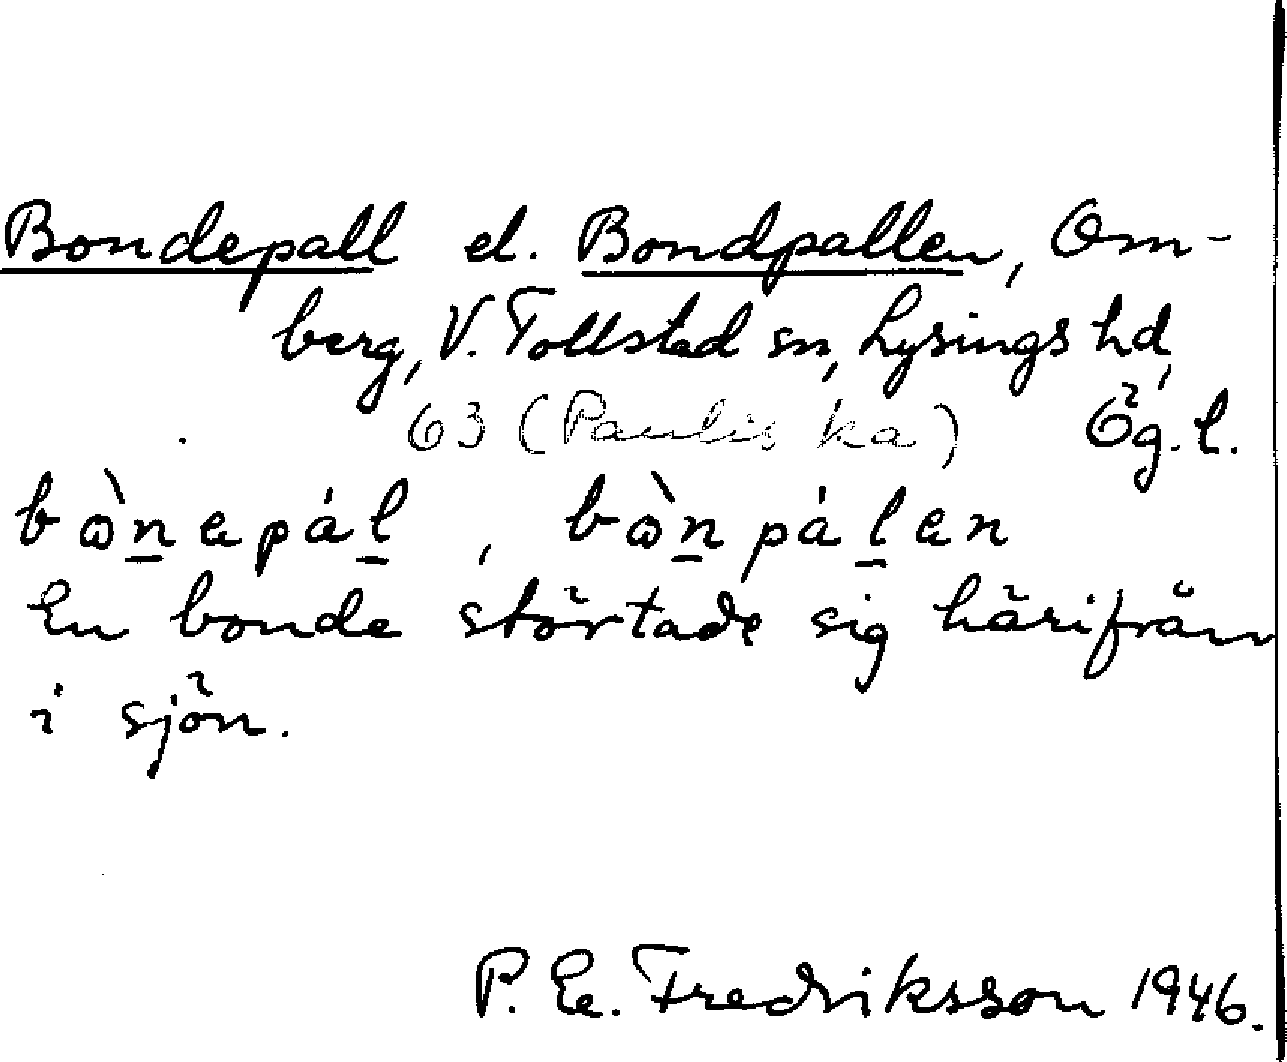 Bondepall el. Bondpallen, Om-
berg, V. Tollstad sn, Lysings hd,
63 (Paulis ka) Ög. l.
bὼn̲epál̲, bὼn̲pál̲en
En bonde störtade sig härifrån
i sjön.
P. E. Fredriksson 1946.